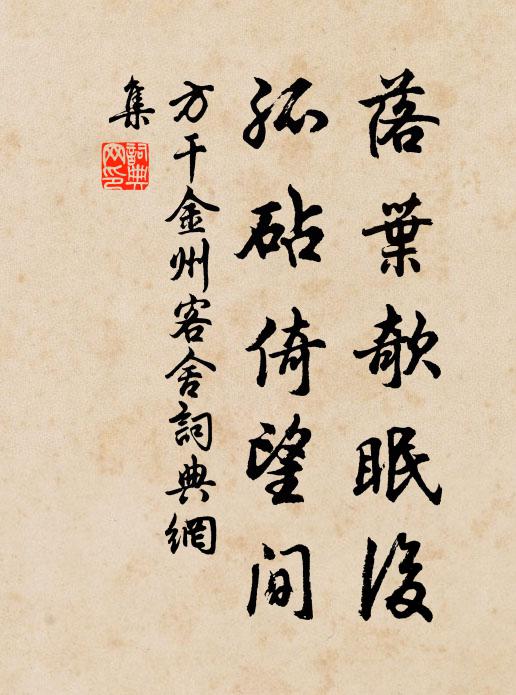 落葉欹眠後
孤砧倚望間
方干金州客舍詞典網
集
詞典網印